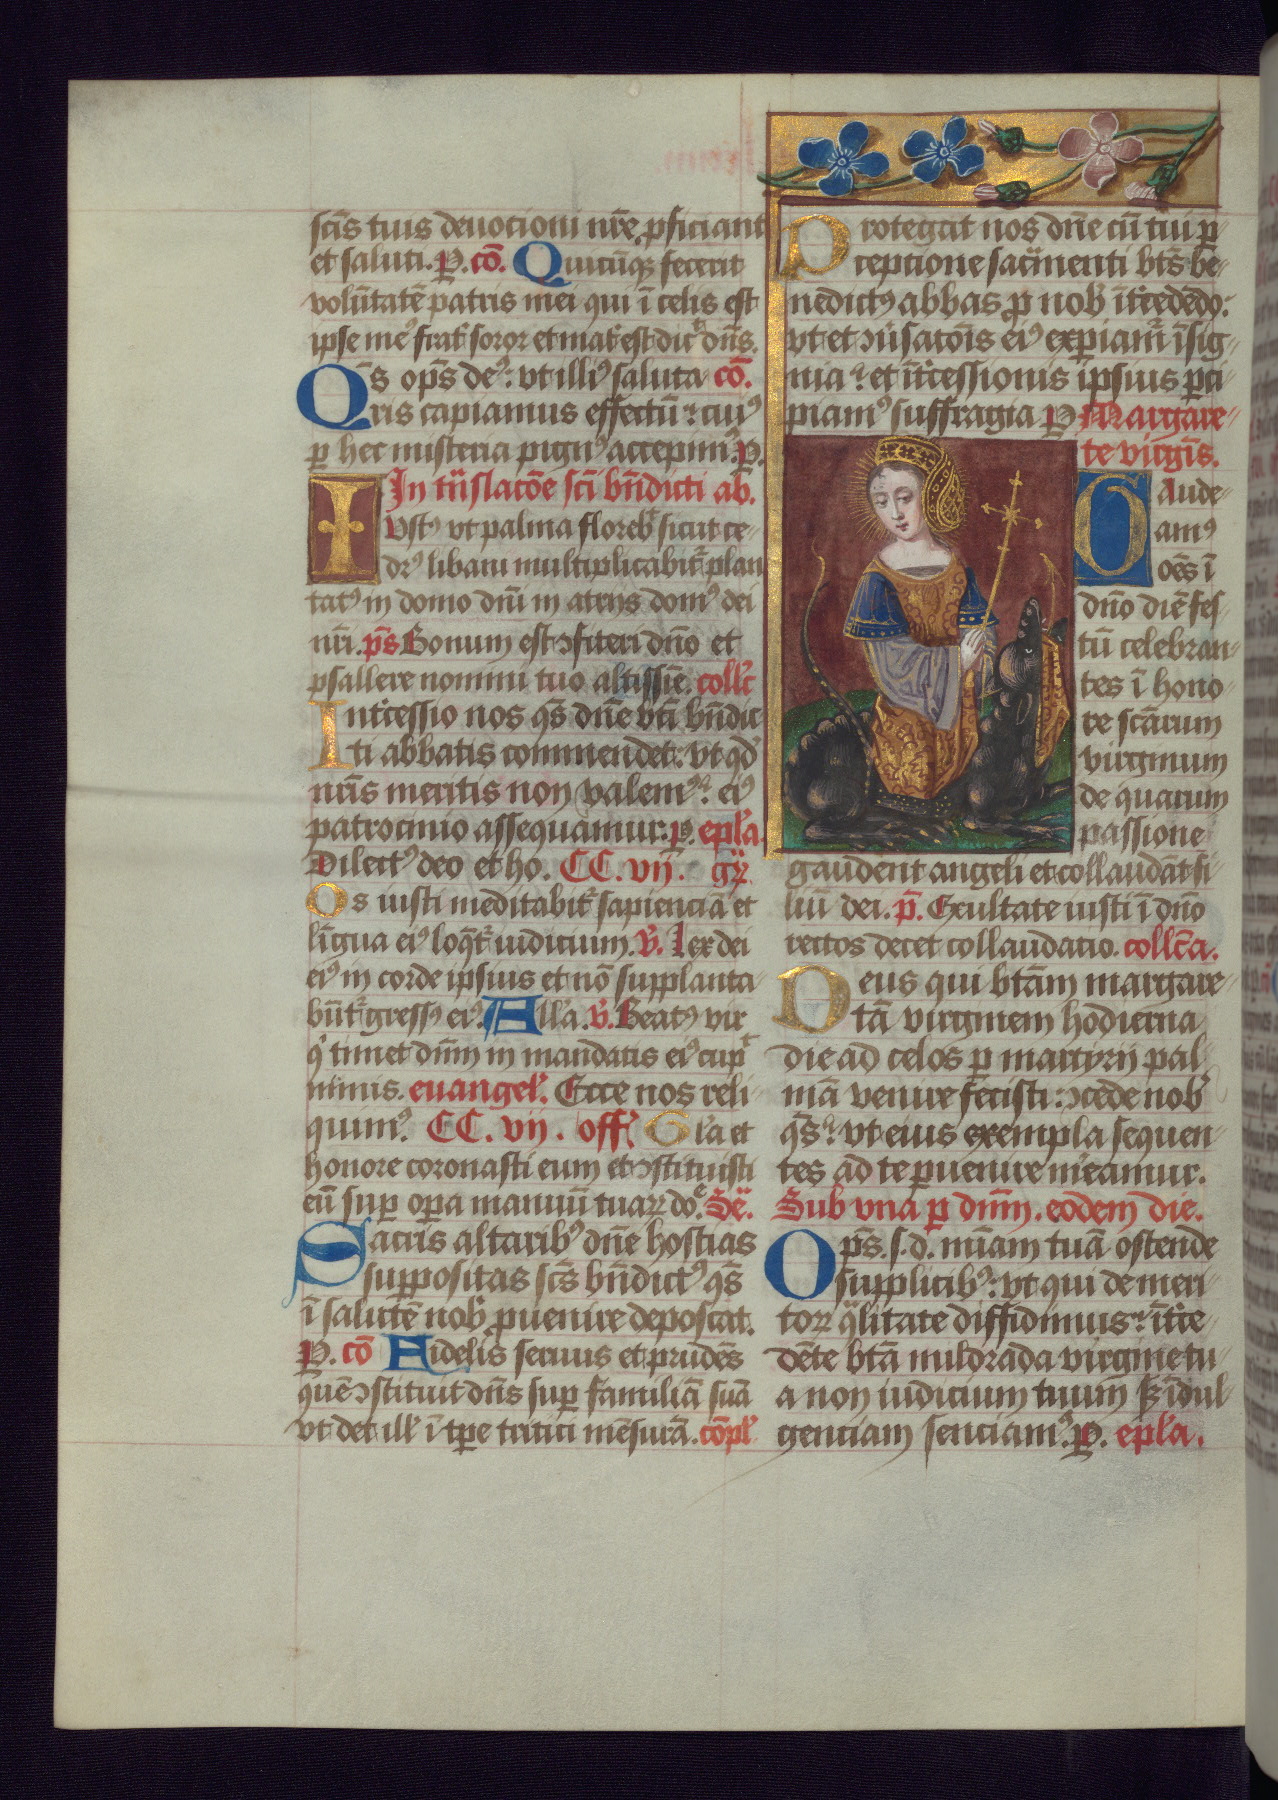 scīs tuis deuocioni nr̄e ꝓficiant
et saluti. P. cō. Quicūqꝫ fecerit
volūtatē patris mei qui ī celis est
ipse meꝰ frat̾ soror et mat̾ est dic̾ dn̄s.
Qs op̄s deꝰ: vt illiꝰ saluta cō.
ris capiamus effectū: cuiꝰ
ꝑ hec misteria pignꝰ accepimꝰ. P.
In trāslacōe scī bn̄dicti ab.
Iustꝰ vt palma floreb̾ sicut ce-
drꝰ libani multiplicabit̾ plan
tatꝰ in domo dn̄i in atrijs domꝰ dei
nr̄i. p̄s Bonum est ↄfiteri dn̄o et
psallere nomini tuo altissīe. collc̄
Int̾cessio nos qs̄ dn̄e bt̄i bn̄dic
ti abbatis commendet: vt qd̾
nr̄is meritis non valemꝰ: eiꝰ
patrocinio assequamur: P. epl̄a
Dilectꝰ deo et ho. CC. vij. gr̄.
Os iusti meditabit̾ sapienciā et
lingua eiꝰ loq̄t̾ iudicium. v̄. lex dei
eiꝰ in corde ipsius et nō supplanta-
būt̾ gressꝰ eiꝰ. All̄a. v̄. Beatꝰ vir
qͥ timet dn̄m in mandatis eiꝰ cup̾
nimis. euangel̾. Ecce nos reli-
quimꝰ. CC. vij. off̾. Gl̄a et
honore coronasti eum et ↄstituisti
eū suꝑ oꝑa manuū tuaꝝ doͤ. Se͞.
Sacris altaribꝰ dn̄e hostias
suppositas scs̄ bn̄dictꝰ qs̄
ī salutē nob̾ ꝓuenire deposcat.
P. cō Fidelis seruus et prudēs
quē ↄstituit dn̄s suꝑ familiā suā
vt det ill̾ ī tꝑe tritici mēsurā. cōpl̾
Protegat nos dn̄e cū tui ꝑ
ceptione sac̄menti bt̄s be-
nedictꝰ abbas ꝓ nob̾ īt̾cedēdo:
vt et ↄūsatōis eiꝰ expiam̾ īsig-
nia: et īt̾cessionis ipsius ꝑci
piamꝰ suffragia P Margare-
te virgīs.
Gaude-
amꝰ
oēs ī
dn̄o diē fes-
tū celebran-
tes ī hono-
re scārum
virginum
de quarum
passione
gaudent angeli et collaudāt fi
liū dei. p̄. Exultate iusti ī dn̄o
rectos decet collaudatio. collc̄a.
Deus qui bt̄am margare-
tā virginem hodierna
die ad celos ꝑ martyrij pal
mā venire fecisti: ↄcede nob̾
qs̄: vt eius exempla sequen-
tes ad te ꝑuenire m̾eamur.
Sub vna ꝑ dn̄m. eodem die.
Op̄s. s. d. mīam tuā ostende
supplicibꝰ: vt qui de meri-
toꝝ qͣlitate diffidimus: īt̾ce-
dēte bt̄a mildrada virgine tu-
a non iudicium tuum sꝫ īdul-
genciam senciamꝰ. P. epl̄a.